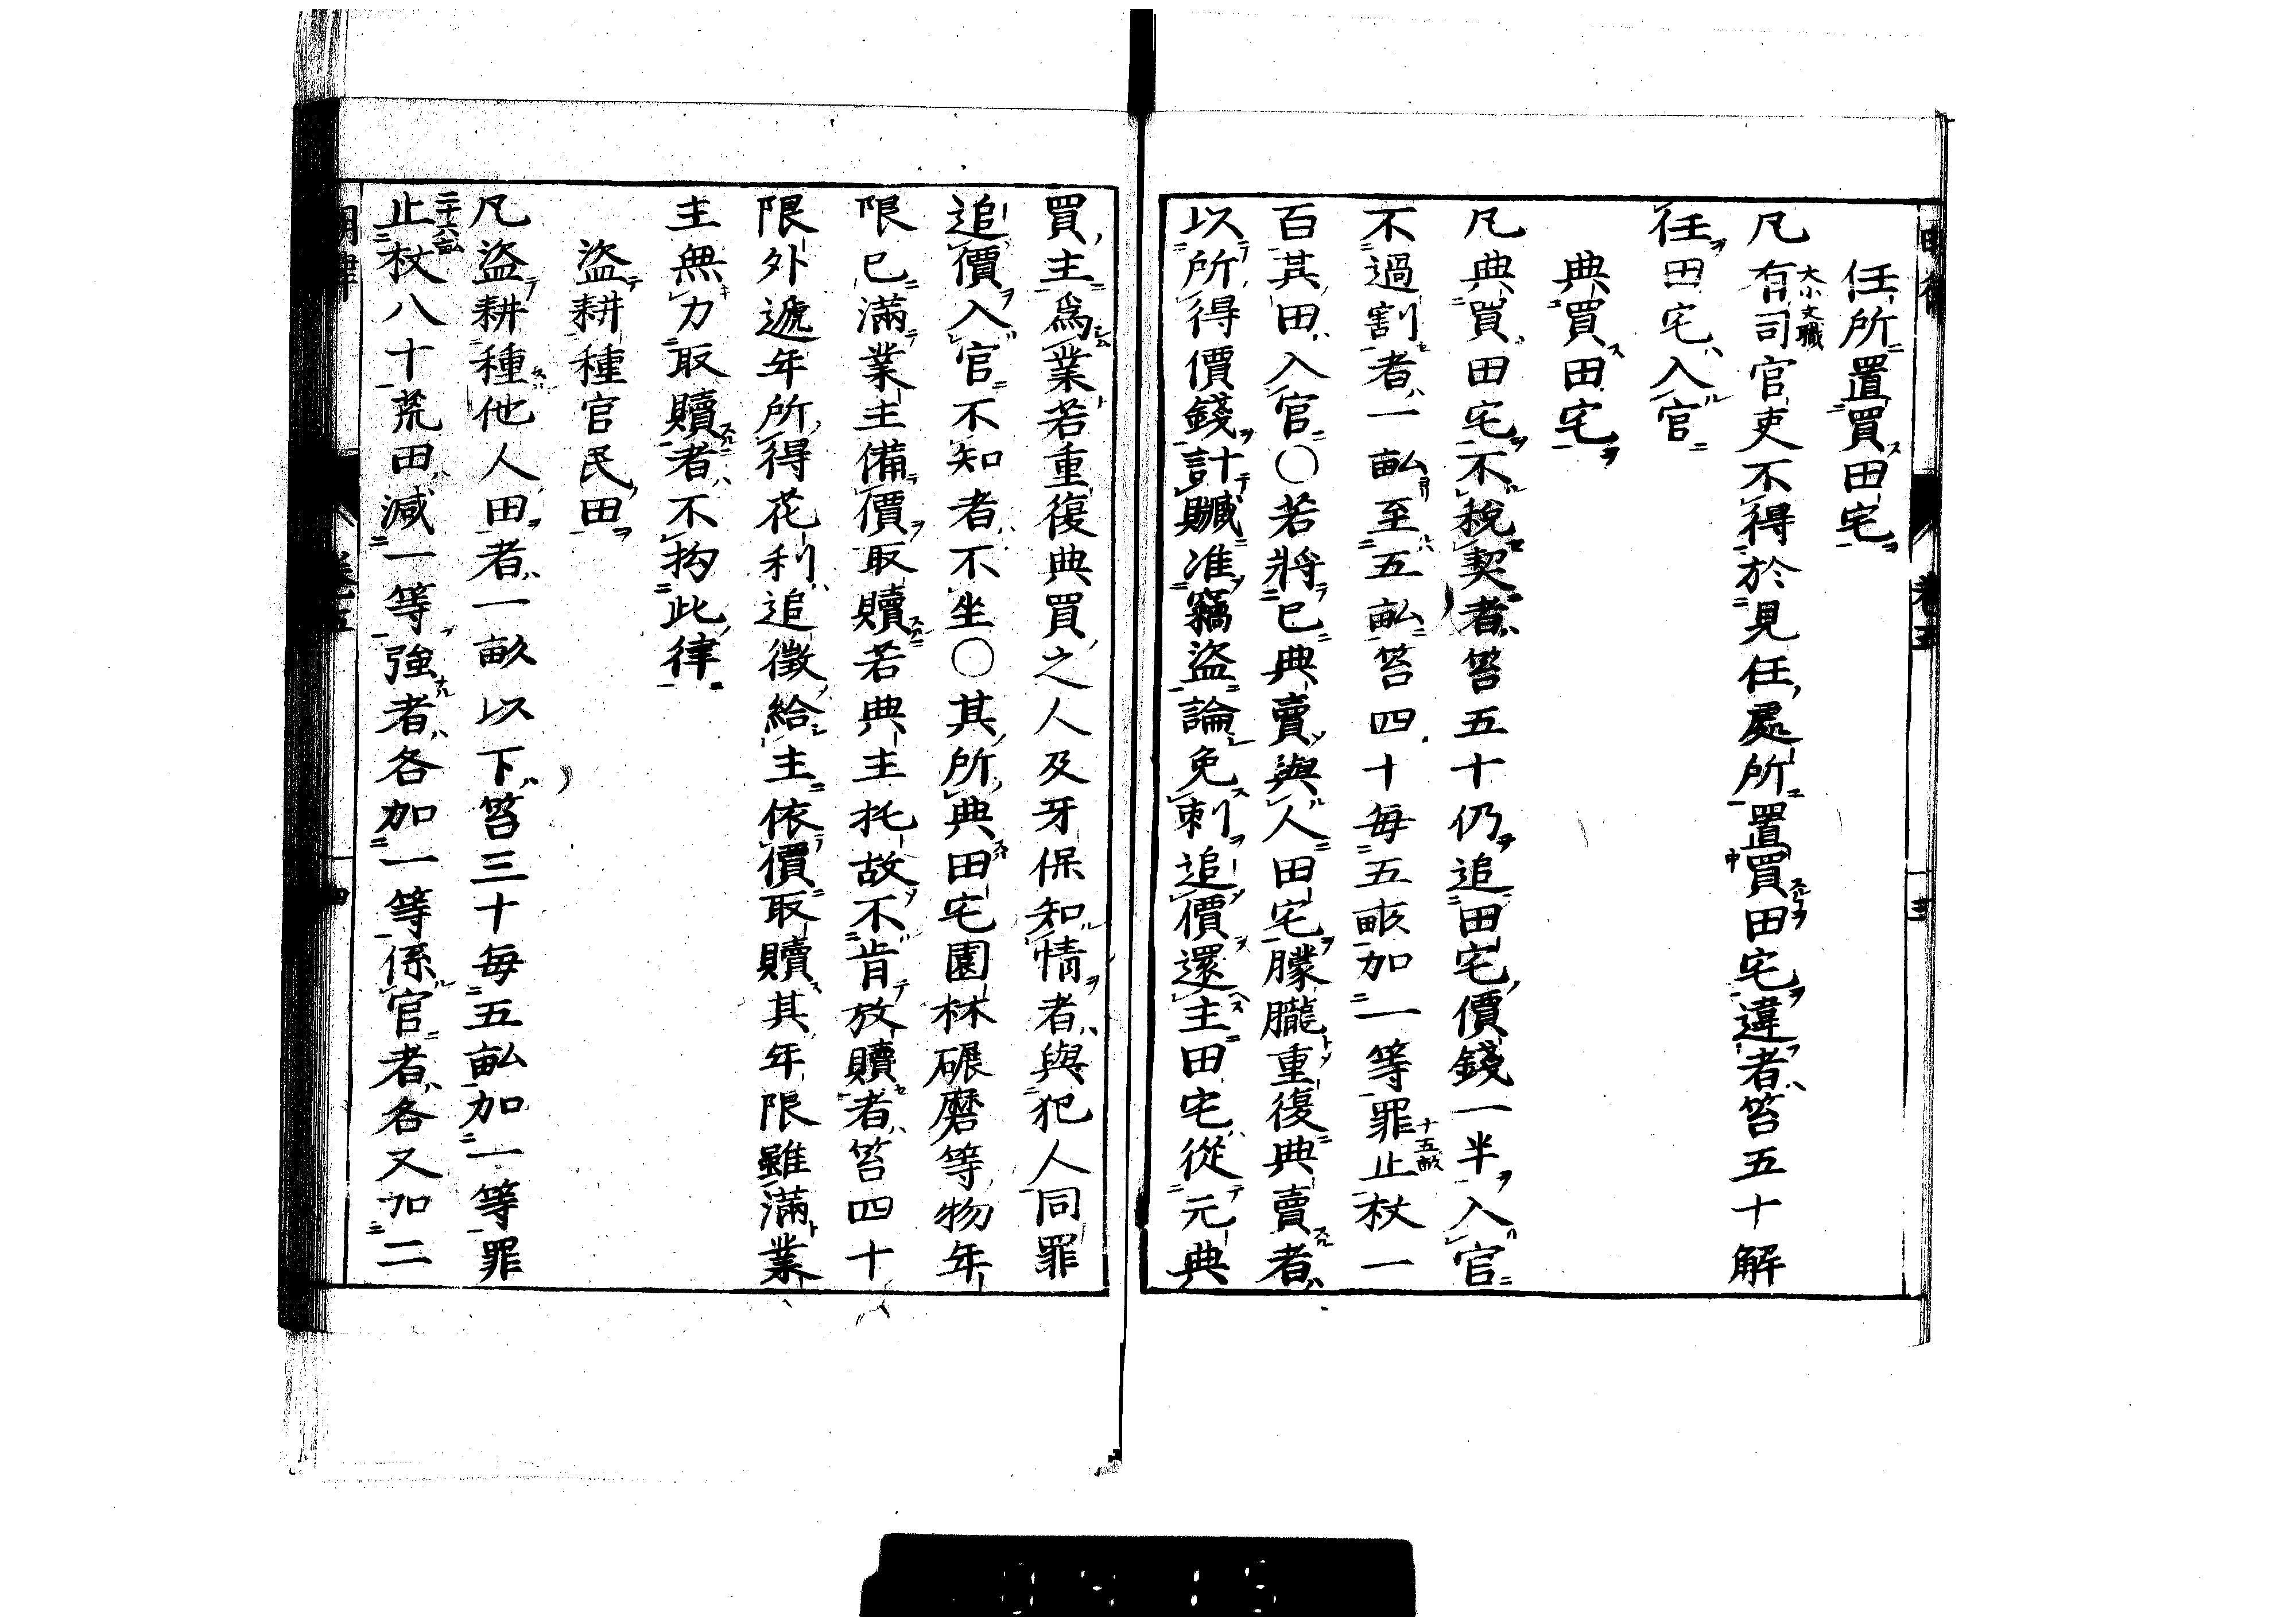 任所置買田宅
凡有司官吏不得於見任處所置買田宅違者笞五十解
大小文職
任田宅入官
典買田宅
凡典買田宅不稅契者笞五十仍追田宅價錢一半入官
不過割者一畝至五畝笞四十每五畝加一等罪止杖一
十五畝
百其田入官〇若將已典賣與人田宅朦朧重復典賣者
以所得價錢計贓准竊盜論免刺追價還主田宅從元典
買主爲業若重復典買之人及牙保知情者與犯人同罪
追價入官不知者不坐〇其所典田宅園林碾磨等物年
限已滿業主備價取贖若典主托故不肯放贖者笞四十
限外遞年所得花利追徵給主依價取贖其年限雖滿業
主無力取贖者不拘此律
盜耕種官民田
凡盜耕種他人田者一畝以下笞三十每五畝加一等罪
二十六畝
止杖八十荒田減一等強者各加一等係官者各又加二